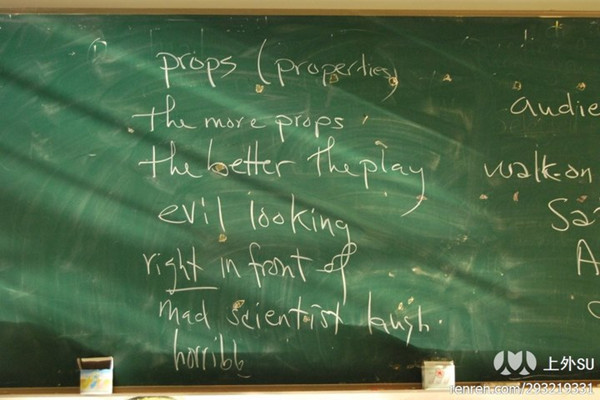 props (properties)
the more props
the better the play
evil looking
right in front of
mad scientist laugh.
horrible
audie
walk-on
Sa
A
上外SU
renren.com/293219331